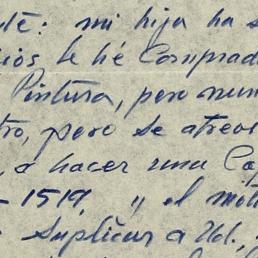 té: mi hija ha s
ios le hé Comprad
Pintura, pero nun
tro, pero se atreve
, a hacer una Co
- 1519, " el mot
Suplicar a Ud.,